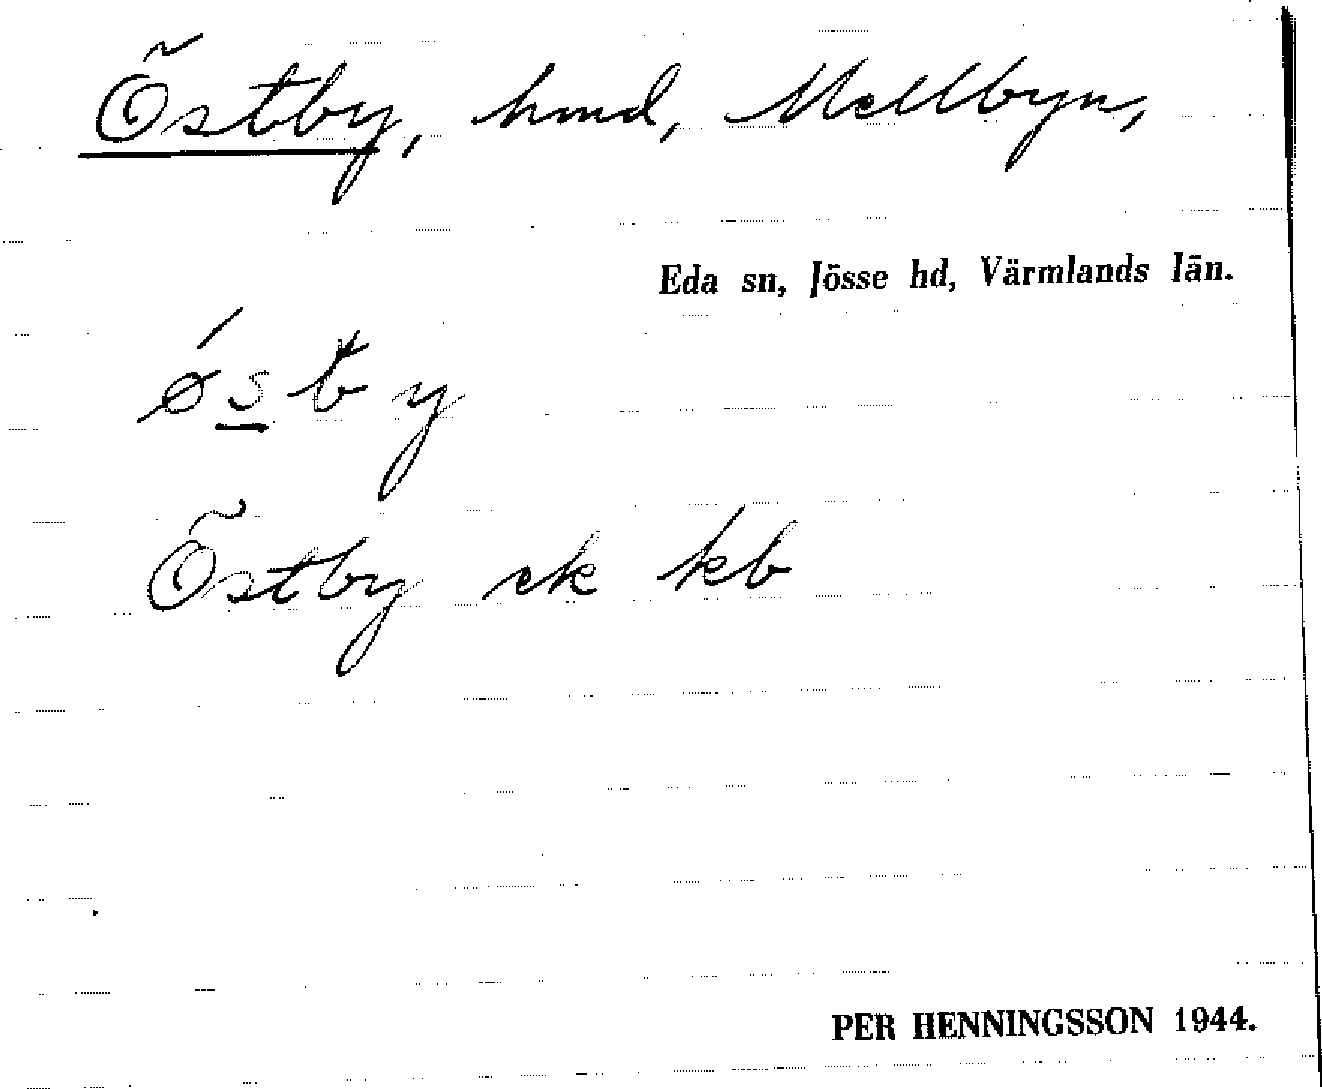 Östby, hmd, Mellbyn,
Eda sn, Jösse hd, Värmlands län.
ǿstby
Östby ek kb
PER HENNINGSSON 1944.